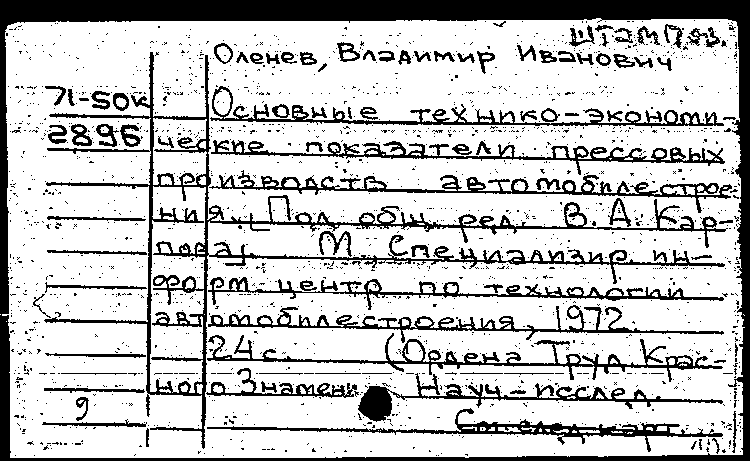 ШТАМП.ЯВ.
Оленев, Владимир Иванович
71-50к
2896
Основные технико-экономи-
ческие показатели прессовых
производств автомобилестрое-
ния. [Под общ. ред. В. А. Кар-
пова]. М., Специализир. ин-
форм. центр по технологии
автомобилестроения, 1972.
24 с. (Ордена Труд. Крас-
ного Знамени Науч-исслед.
См. след. карт.
9